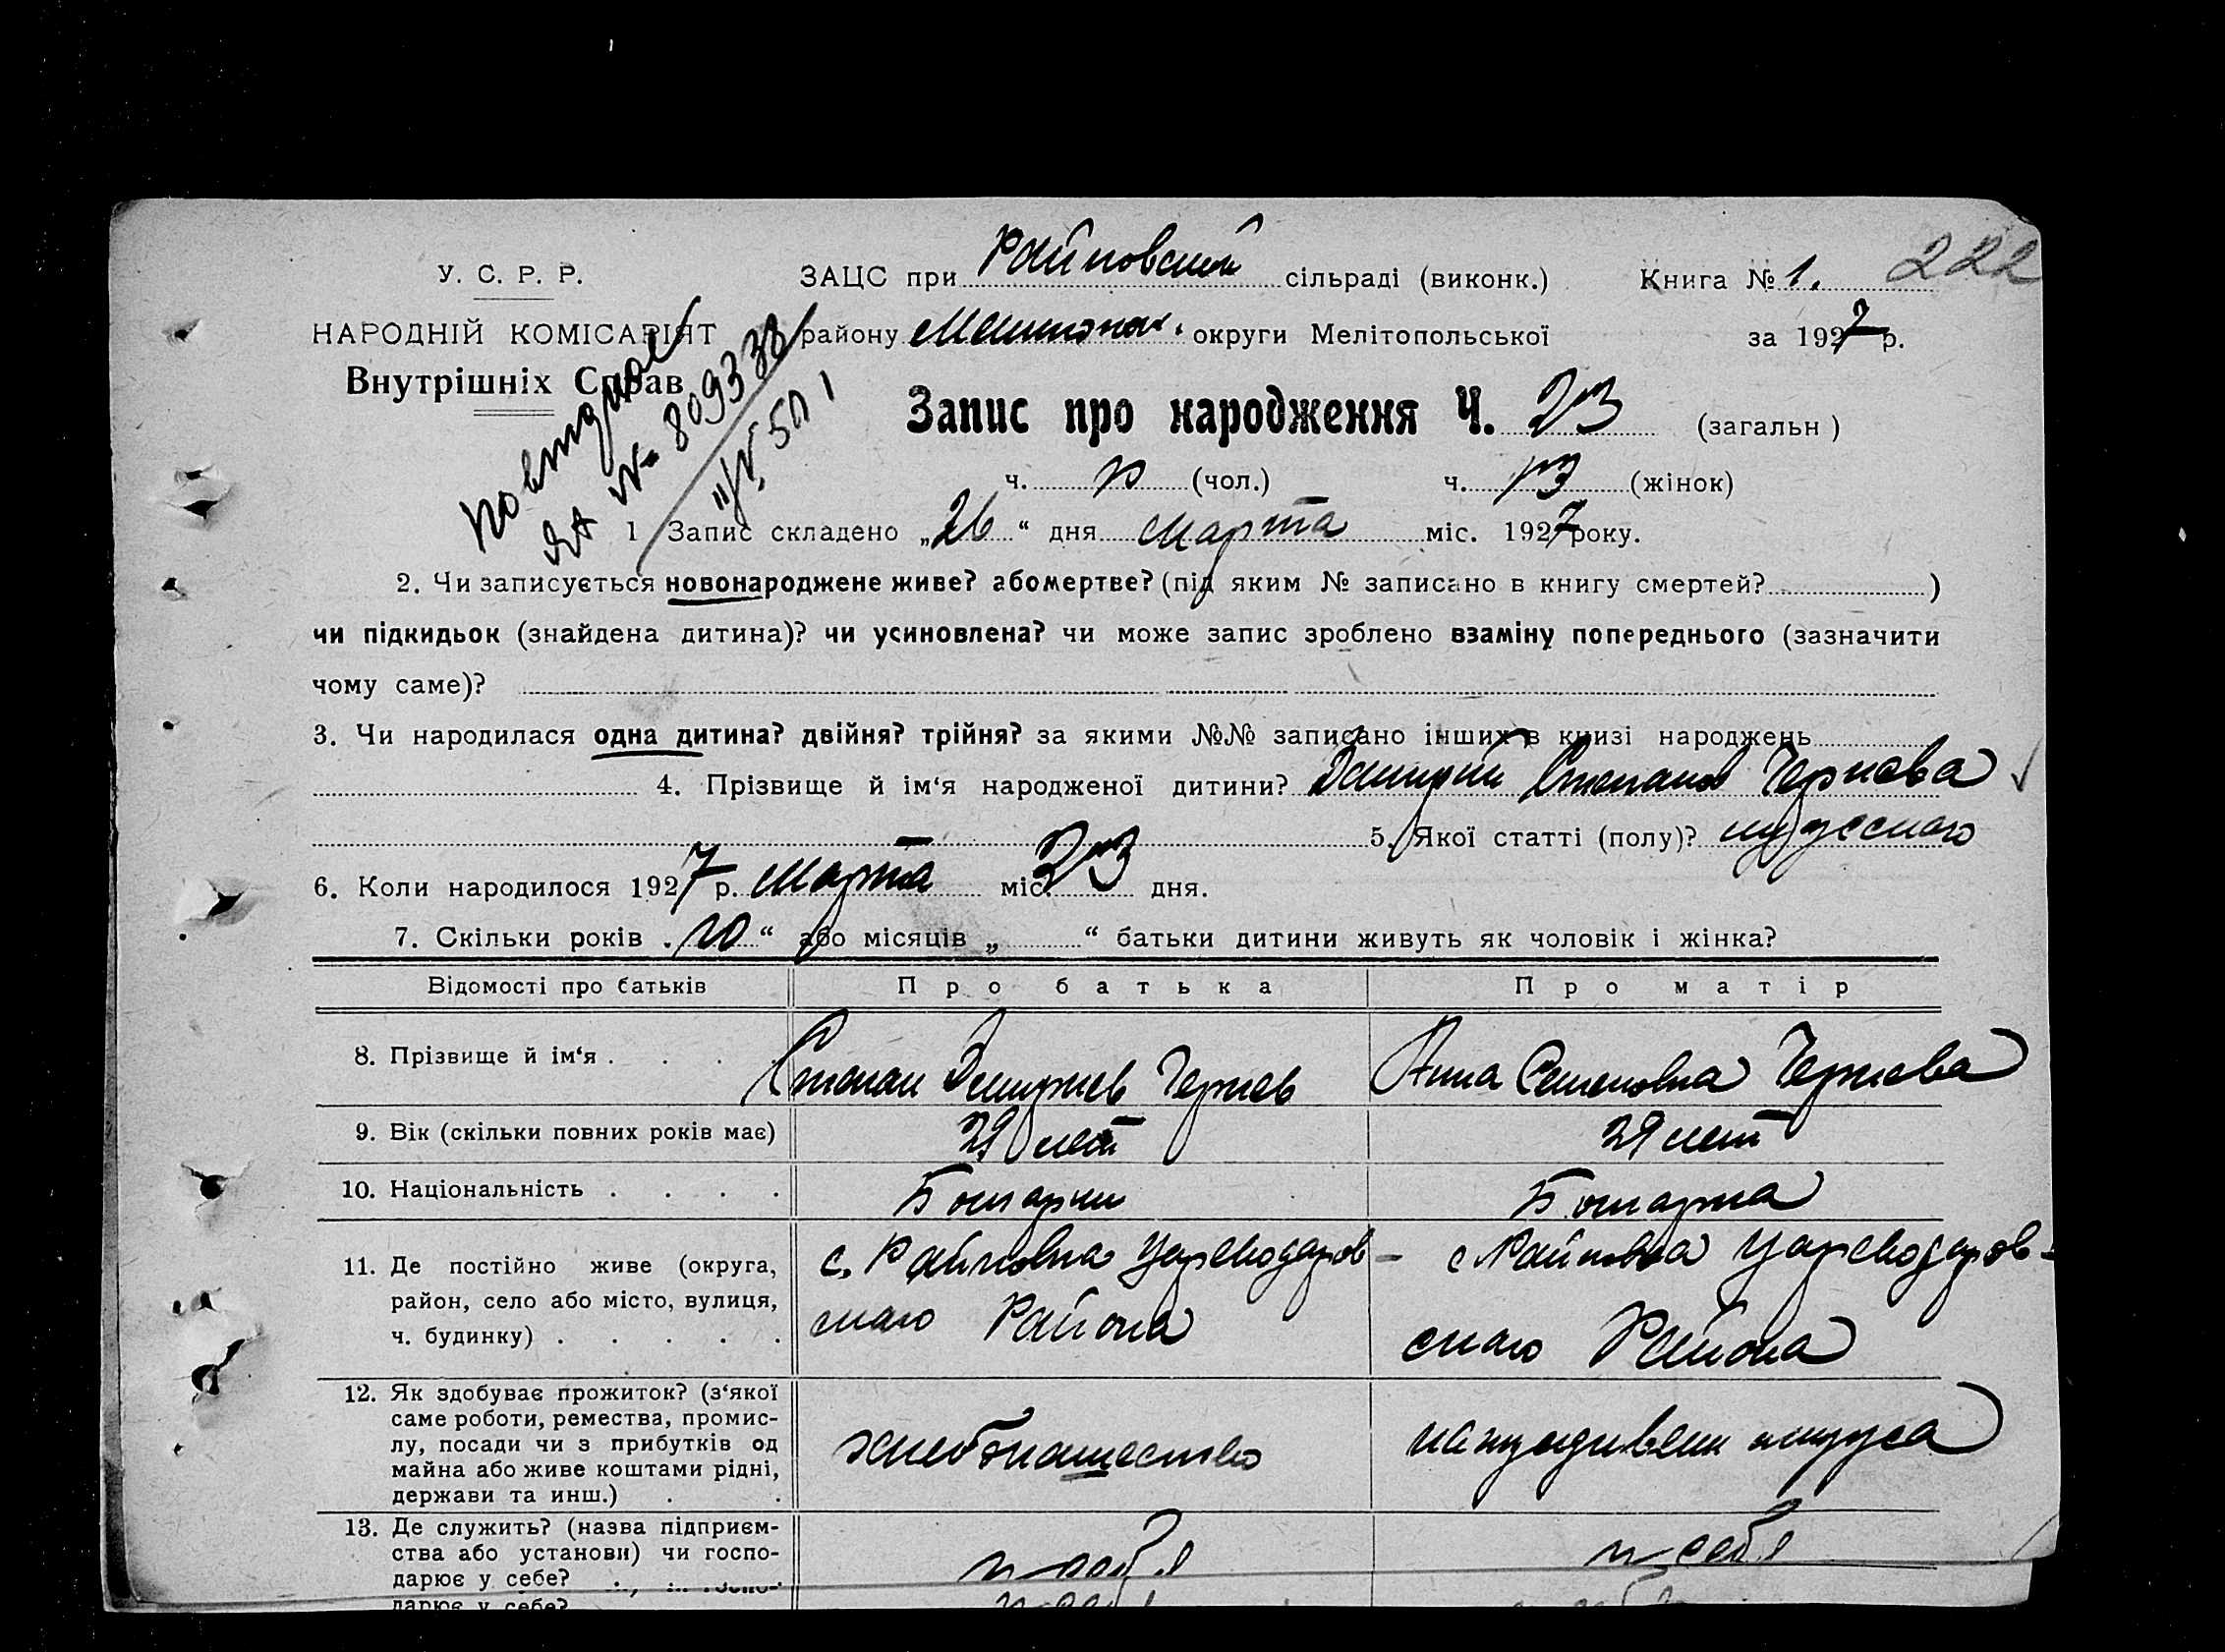 Райновский 222
У. С. Р. Р. ЗАЦС при сільраді (виконк.) Книга № 1.
НАРОДНІЙ КОМІСАРІЯТ району Мелитопол. округи Мелітопольської за 1927 р.
Внутрішніх Справ
№ 809338
Запис про народження Ч. 23 (загальн )
ч. (чол.) ч. 13 (жінок)
1 Запис складено „26“ дня Марта міс. 1927 року.
2. Чи записується новонароджене живе? або мертве? (під яким № записано в книгу смертей? )
чи підкидьок (знайдена дитина)? чи усиновлена? чи може запис зроблено взаміну попереднього (зазначити
чому саме)?
3. Чи народилася одна дитина? двійня? трійня? за якими №№ записано інших в книзі народжень
4. Прізвище й ім‘я народженої дитини? Степанов Чернева
5. Якої статті (полу)?
6. Коли народилося 1927 р. Марта міс. 23 дня.
7. Скільки років „10“ або місяців „ “ батьки дитини живуть як чоловік і жінка?
Відомості про батьків Про батька Про матір
8. Прізвище й ім‘я . . . . Степан Чернев Анна Семеновна Чернева
9. Вік (скільки повних років має) 29 лет 29 лет
10. Національність . . . . Болгарин Болгарка
11. Де постійно живе (округа, с. Райновка Цареводаров- с Райновка Цареводаров-
район, село або місто, вулиця, скаго Района скаго Района
ч. будинку) . . . . .
12. Як здобуває прожиток? (з‘якої
саме роботи, ремества, промис-
лу, посади чи з прибутків од хлебопашество на иждивении мужа
майна або живе коштами рідні,
держави та инш.) . .
13. Де служить? (назва підприєм-
ства або установи) чи госпо- у себя у себя
дарює у себе?
дарює у себе?